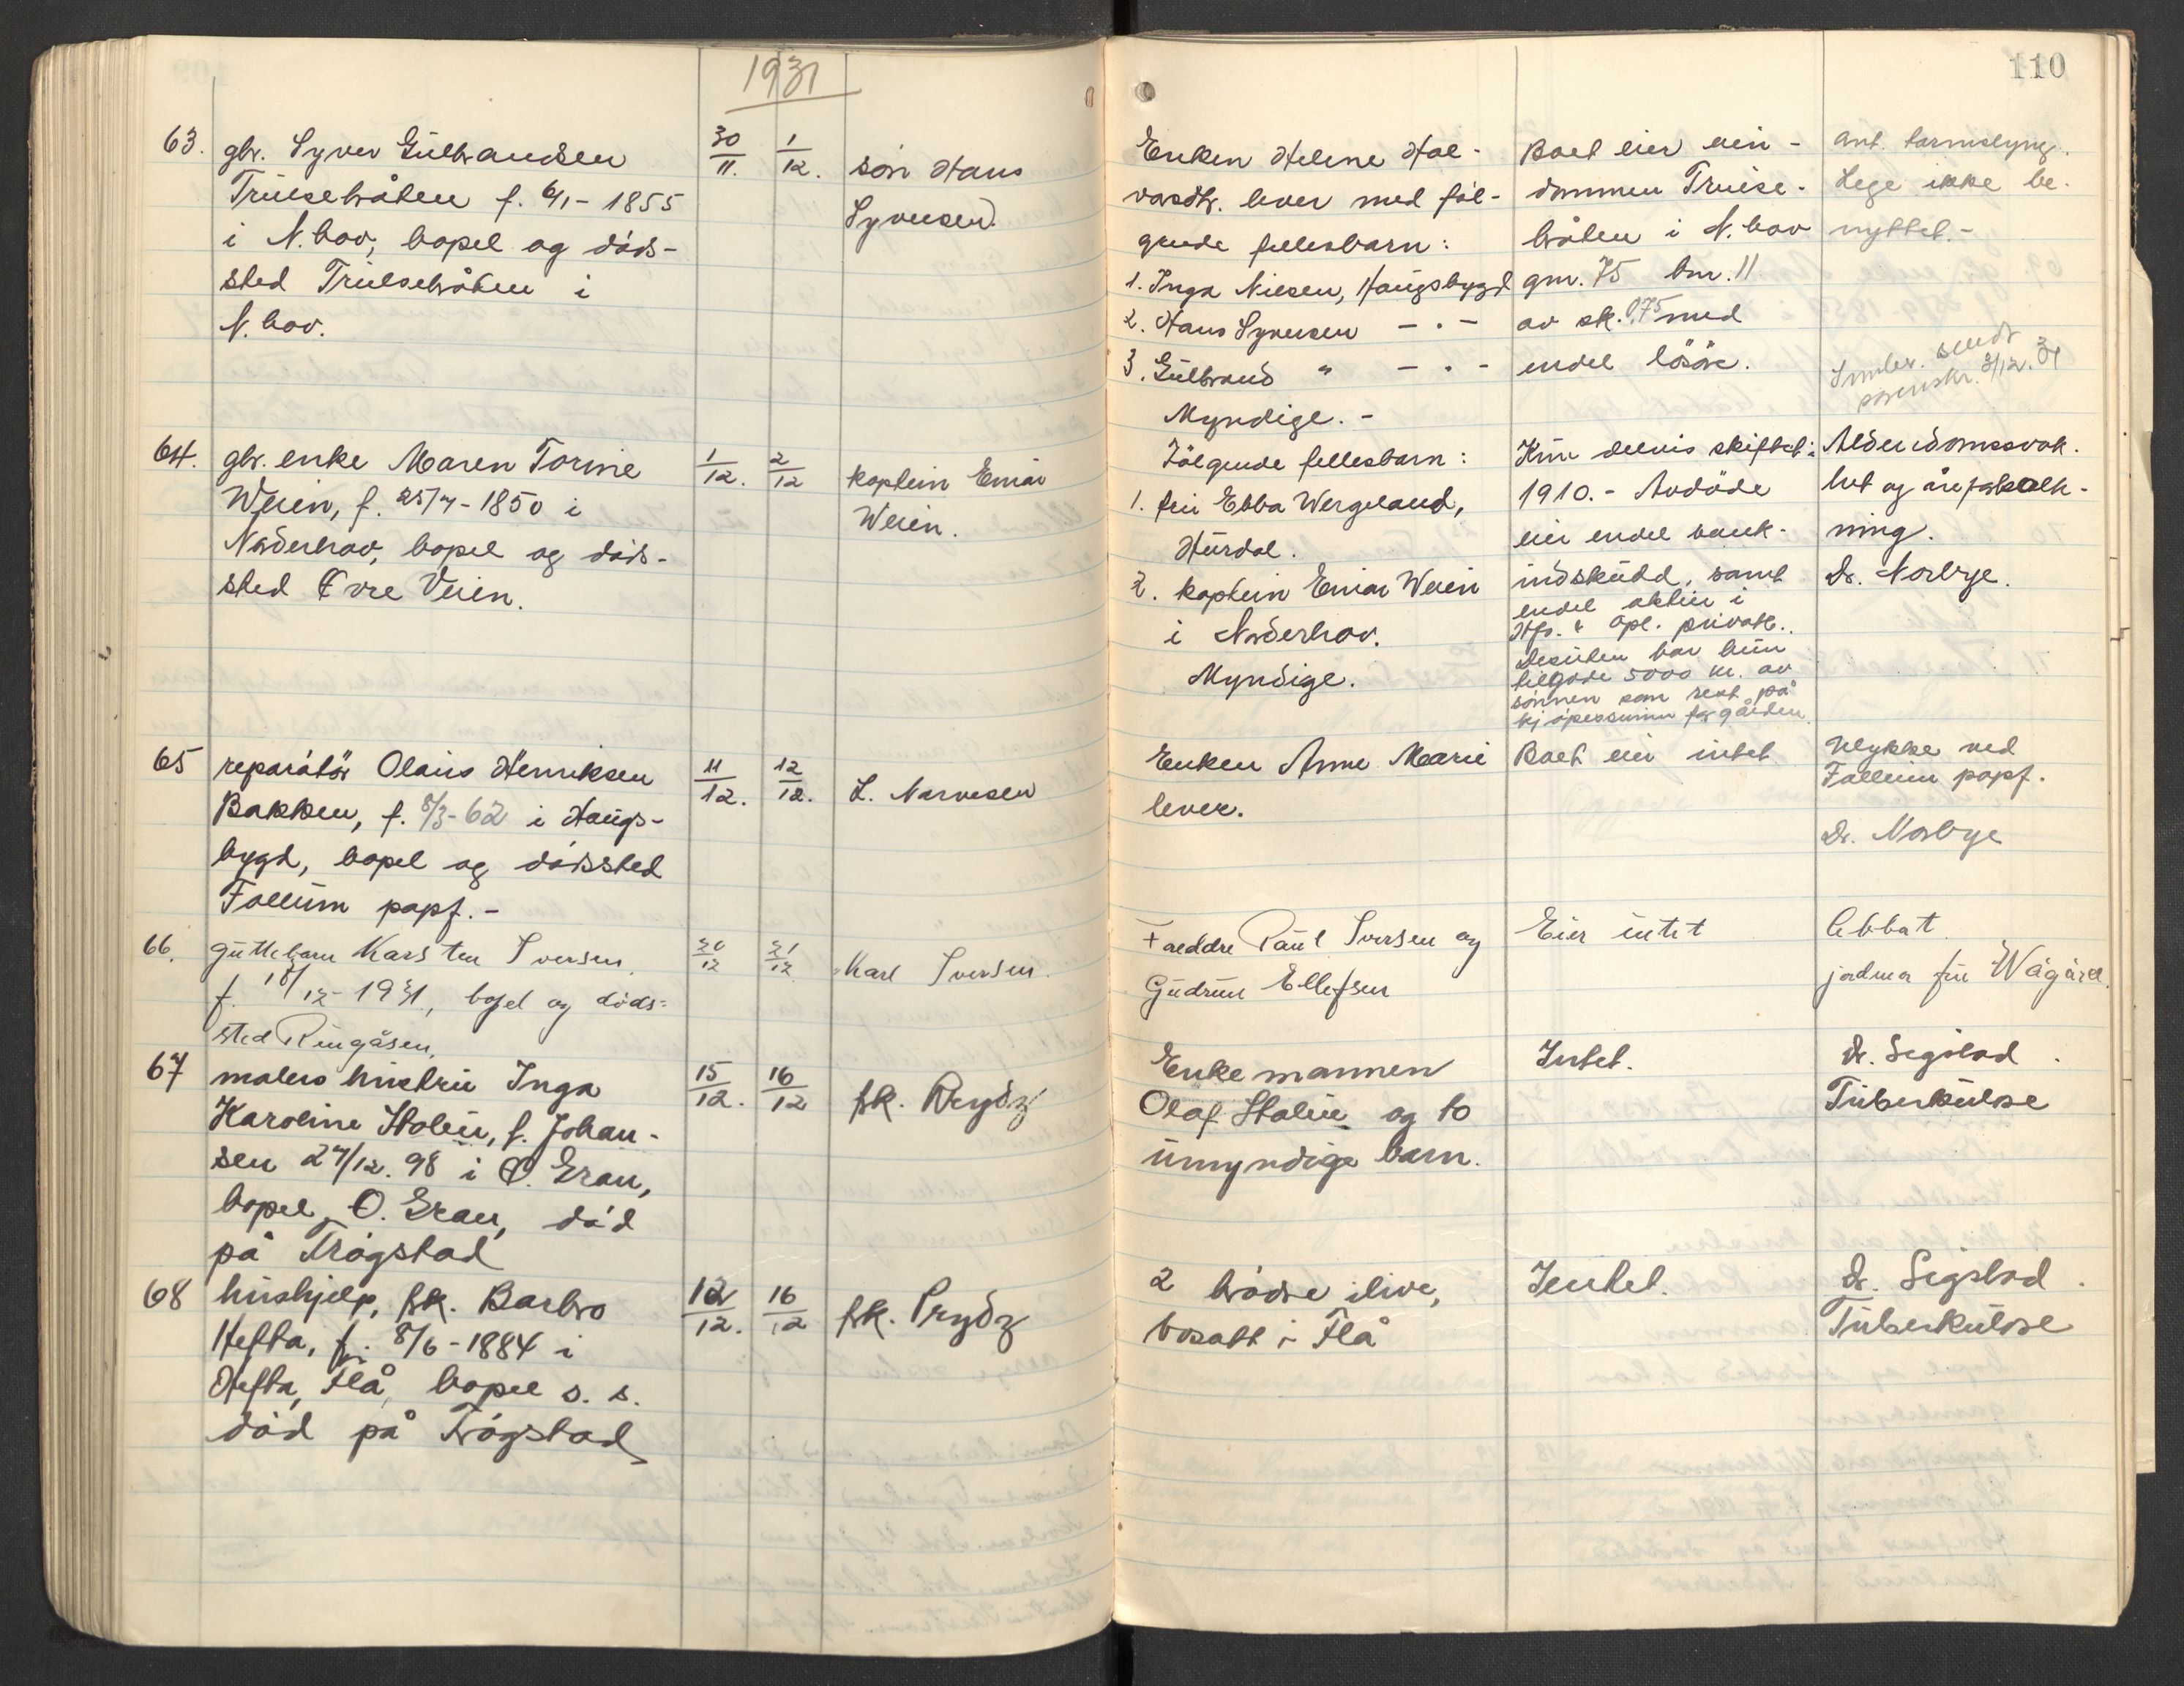 1931
110
63. gbr. Syver Gulbrandsen
Trulsebråten f. 6/1 - 1855
i N.hov, bopel og døds-
sted Trulsebråten i
N.hov.
30/11. 1/12.
søn Hans
Syversen.
Enken Helene Hal-
vordtr. lever med føl-
gende fellesbarn:
1. Inga Nilsen, Haugsbygd
2. Hans Syversen - " -
3. Gulbrand " - " -
Myndige. -
Boet eier eien-
dommen Trulse-
bråten i N.hov
gnr. 75 bnr. 11
av sk. 0,75 med
endel løsøre.
ant. tarmslyng.
Lege ikke be-
nyttet. -
sendt
sorenskr. 3/12. 31
64. gbr. enke Maren Torine
Weien, f. 25/7 - 1850 i
Norderhov, bopel og døds-
sted Øvre Veien.
1/12. 2/12
kaptein Einar
Weien.
Følgende fellesbarn:
1. fru Ebba Wergeland,
Hurdal.
2. kaptein Einar Weien
i Norderhov.
Myndige.
Kun delvis skiftet i
1910. - Avdøde
eier endel bank-
indskudd, samt
endel aktier i
Hfs. & Opl. privatb.
Desuten har hun
tilgode 5000 kr. av
sønnen som rest på
kjøpesummen for gården.
Alderdomssvak-
het og åreforkalk-
ning.
Dr. Norbye.
65 reparatør Olaus Henriksen
Bakken, f. 8/3-62 i Haugs-
bygd, bopel og dødssted
Follum papf. -
11/12. 12/12.
L. Narvesen
Enken Anne Marie
lever.
Boet eier intet
Ulykke ved
Follum papf.
Dr. Norbye
66. guttebarn Karsten Iversen
f. 18/12 - 1931, bopel og døds-
sted Ringåsen.
20/12 21/12
Karl Iversen.
Foreldre Paul Iversen og
Gudrun Ellefsen
Eier intet
jordmor fru Wågård.
67 malers hustru Inga
Karoline Stolen, f. Johan-
sen 27/12. 98 i Ø. Gran,
bopel Ø. Gran, død
på Trøgstad
15/12. 16/12
frk. Prydz
Enkemannen
Olaf Stolen og to
umyndige barn.
Intet.
Dr. Sigstad.
Tuberkulose
68 hushjelp, frk. Barbro
Hefta, f. 8/6 - 1884 i
Hefta, Flå, bopel s. s.
død på Trøgstad
12/12. 16/12
frk. Prydz
2 brødre ilive,
bosatt i Flå
Intet.
Dr. Sigstad.
Tuberkulose